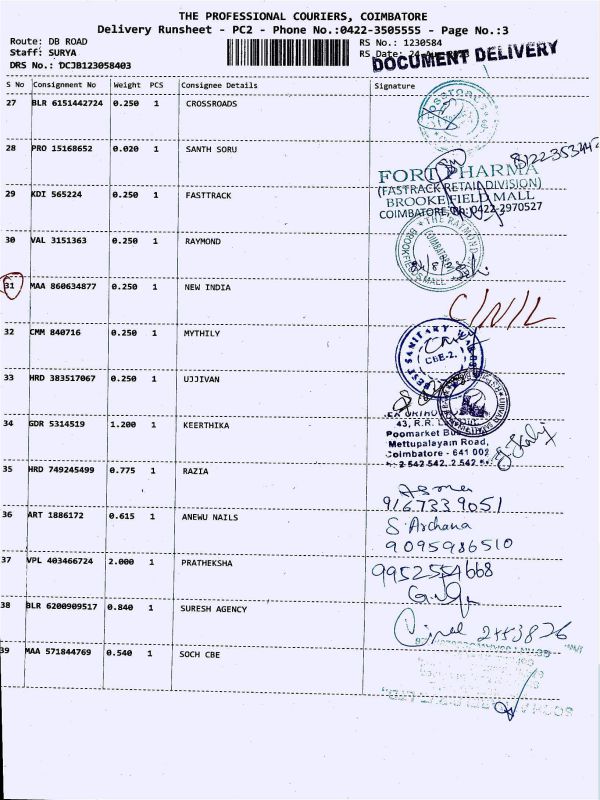 THE PROFESSIONAL COURIERS, COIMBATORE
Delivery Runsheet - PC2 - Phone No.:0422-3505555 - Page No.:3
Route: DB ROAD RS No.: 1230584
Staff: SURYA RS Date: 24
DRS No.: DCJB123058403 DOCUMENT DELIVERY
S No Consignment No Weight PCS Consignee Details Signature
27 BLR 6151442724 0.250 1 CROSSROADS
28 PRO 15168652 0.020 1 SANTH SORU
FORT PHARMA
(FASTRACK RETAIL DIVISION)
29 KDI 565224 0.250 1 FASTTRACK
BROOKEFIELD MALL
COIMBATORE, Ph: 0422-2970527
30 VAL 3151363 0.250 1 RAYMOND
THE RAYMOND
31 MAA 860634877 0.250 1 NEW INDIA
32 CMM 840716 0.250 1 MYTHILY
BEST SANITARY
CBE-2.
33 HRD 383517067 0.250 1 UJJIVAN
34 GDR 5314519 1.200 1 KEERTHIKA
43, R.R.
Poomarket
Mettupalayam Road,
Coimbatore - 641 002
2 542 542, 2 542
35 HRD 749245499 0.775 1 RAZIA
9167339051
36 ART 1886172 0.615 1 ANEWU NAILS
S. Archana
9095986510
37 VPL 403466724 2.000 1 PRATHEKSHA
9952554668
38 BLR 6200909517 0.840 1 SURESH AGENCY
2453876
39 MAA 571844769 0.540 1 SOCH CBE